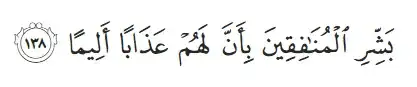 بَشِّرِ ٱلْمُنَٰفِقِينَ بِأَنَّ لَهُمْ عَذَابًا أَلِيمًا ١٣٨